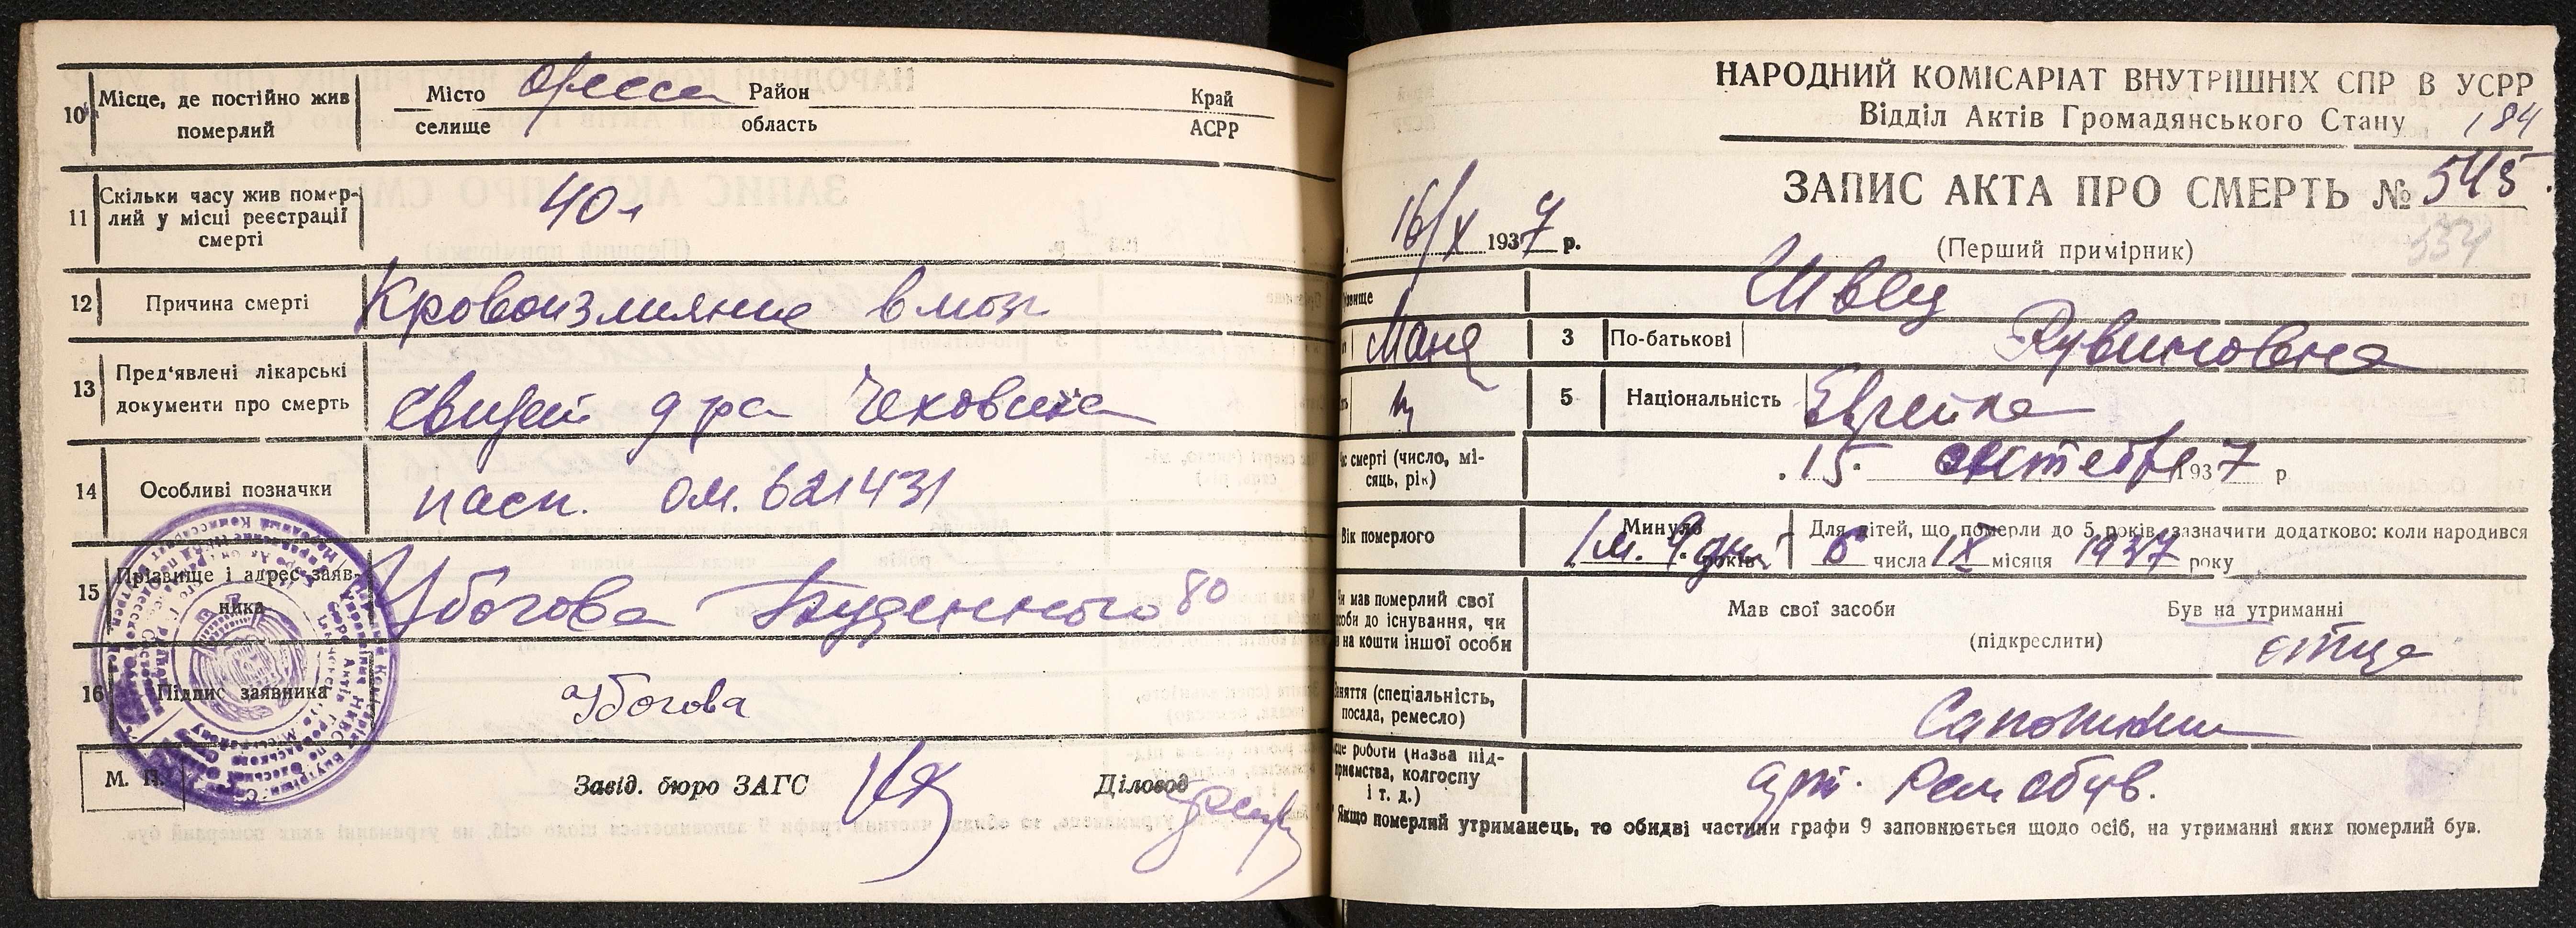 10 Місце, де постійно жив померлий
Місто Одесса Район Край
селище область АСРР
11 Скільки часу жив помер-
лий у місці реєстрації
смерті
40 л
12 Причина смерті Кровоизлияние в мозг
13 Пред'явлені лікарські
документи про смерть
Свидет д-ра Чеховича
14 Особливі позначки пасп. ОМ. 621431
15 Прізвище і адрес заяв-
ника
Убогова Буденного 80
16 Підпис заявника Убогова
М. П. Завід. бюро ЗАГС Діловод
НАРОДНИЙ КОМІСАРІАТ ВНУТРІШНІХ СПР В УСРР
Відділ Актів Громадянського Стану 184
ЗАПИС АКТА ПРО СМЕРТЬ № 545
16/X 1937 р.
(Перший примірник) 534
Швец
Маня 3 По-батькові Рувиновна
5 Національність Еврейка
смерті (число, мі-
сяць, рік)
15. октября 1937 р
Вік померлого
Минуло 1 м. 9 дн. років
Для дітей, що померли до 5 років, зазначити додатково: коли народився
6 числа IX місяця 1937 року
мав померлий свої
до існування, чи
на кошти іншої особи
Мав свої засоби Був на утриманні
(підкреслити) отца
(спеціальність,
посада, ремесло)
Сапожник
роботи (назва під-
колгоспу
і т. д.)
арт. Рем обув.
Якщо померлий утриманець, то обидві частини графи 9 заповнюється щодо осіб, на утриманні яких померлий був.